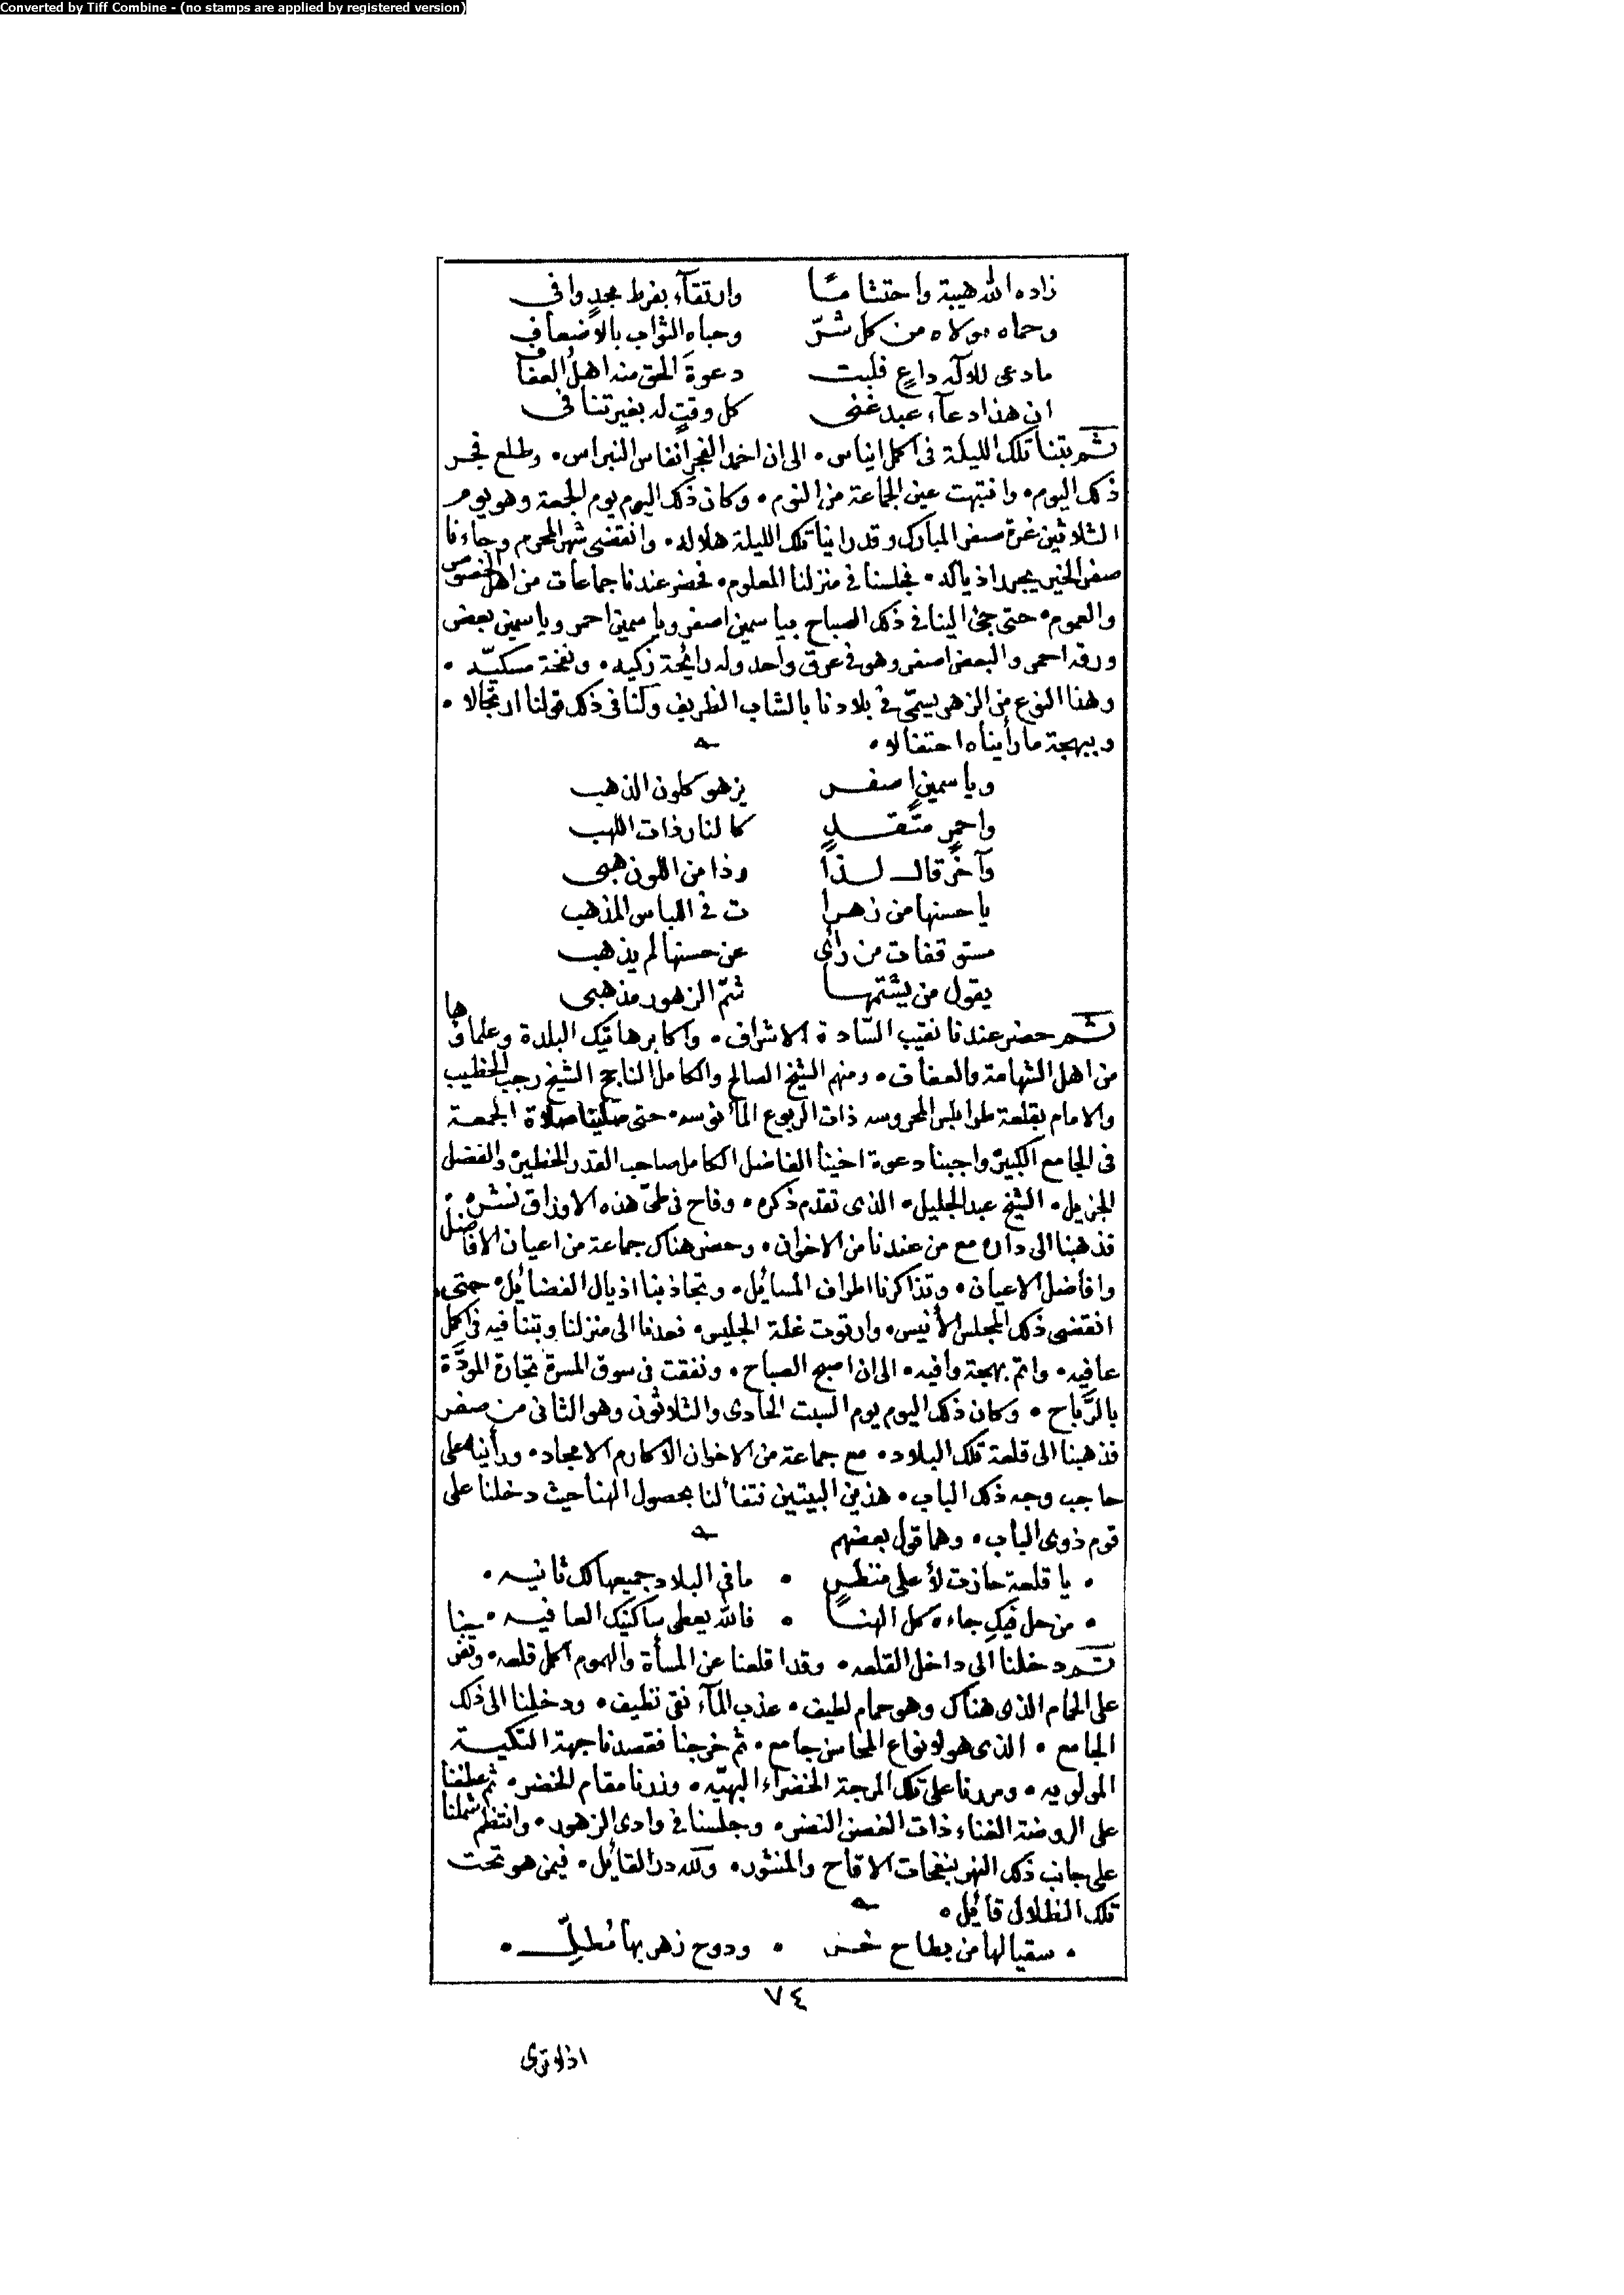 Converted by Tiff Combine - (no stamps are applied by registered version)
زاده الله هيبة واحتشاما وارتقآء بفرط مجدٍ وافى
وحماه مولاه من كل شرّ وحباه الثواب بالاضعاف
مادعى للاله داعٍ فلبت دعوةَ الحق منه اهلُ العفاف
ان هذا دعآء عبد غنى كل وقتٍ له بغير تنافى
ثم بتنا تلك الليلة فى اكمل ايناس • الى ان اخمد الفجر أنفاس النبراس • وطلع فجر
ذلك اليوم • وانتبهت عين الجماعة من النوم • وكان ذلك اليوم يوم الجمعة وهو يوم
الثلاثين غرة صفر المبارك وقد راينا تلك الليلة هلاله • وانقضى شهر المحرم وجاءنا
صفر الخير يجر اذياله • فجلسنا فى منزلنا المعلوم • فحضر عندنا جماعات من اهل الخصوص
والعموم • حتى جئ الينا فى ذلك الصباح بياسمين اصفر وياسمين احمر وياسمين بعض
ورقه احمر والبعض اصفر وهو فى عرق واحد وله رائحة زكيه • ونفخة مسكيّه •
وهذا النوع من الزهر يسمّى فى بلادنا بالشاب الظريف ولنا فى ذلك قولنا ارتجالا •
وببهجة ما رأيناه احتفالا •
وياسمينٍ اصفر يزهو كلون الذهب
واحمرٍ متّقدٍ كالنار ذات اللهب
وآخرٌ قال لذا وذا من اللون هبى
يا حسنها من زهرا ت فى اللباس المذهب
مستوقفات من رأى عن حسنها لم يذهب
يقول من يشتمها شمّ الزهور مذهبى
ثم حضر عندنا نقيب السّادة الاشراف • واكابر هاتيك البلدة وعلماؤها
من اهل الشهامة والعفاف • ومنهم الشيخ الصالح والكامل الناجح الشيخ رجب الخطيب
والامام بقلعة طرابلس المحروسه ذات الربوع المأنوسه • حتى صلينا صلاة الجمعة
فى الجامع الكبير واجبنا دعوة اخينا الفاضل الكامل صاحب القدر الخطير والفضل
الجزيل • الشيخ عبد الجليل • الذى تقدم ذكره • وفاح فى طىّ هذه الاوراق نشره •
فذهبنا الى داره مع من عندنا من الاخوان • وحضر هناك جماعة من اعيان الافاضل
وافاضل الاعيان • وتذاكرنا اطراف المسائل • وتجاذبنا اذيال الفضائل • حتى
انقضى ذلك المجلس الأنيس • وارتوت غلة الجليس • فعدنا الى منزلنا وبتنا فيه فى اكمل
عافيه • واتم بهجة وافيه • الى ان اصبح الصباح • ونفقت فى سوق المسرة تجارة المودَّة
بالرَّباح • وكان ذلك اليوم يوم السبت الحادى والثلاثون وهو الثانى من صفر
فذهبنا الى قلعة تلك البلاد • مع جماعة من الاخوان الاكارم الامجاد • ورأينا على
حاجب وجه ذلك الباب • هذين البيتين فتفألنا بحصول الهنا حيث دخلنا على
قوم ذوى الباب • وهما قول بعضهم
• يا قلعة حازت لأعلى منظرٍ • مافى البلاد جميعها لك ثانيه •
• من حل فيكِ جاءه كل الهنا • فالله يعطى ساكنيك العافيه •
ثم دخلنا الى داخل القلعه • وقد اقلعنا عن المسأة والهموم اكمل قلعه • وتفرجنا
على الحمام الذى هناك وهو حمام لطيف • عذب المآء نقى نظيف • ودخلنا الى ذلك
الجامع • الذى هو لانواع المحاسن جامع • ثم خرجنا فقصدنا جهة التكية
المولويه • ومررنا على تلك المرجة الخضراء البهيّه • وزرنا مقام الخضر • ثم عطفنا
على الروضة الغناء ذات الغصن النضر • وجلسنا فى وادى الزهور • وانتظم شملنا
على جانب ذلك النهر بنفحات الاقاح والمنثور • ولله در القائل • فيمن هو تحت
تلك الظلال قائل •
• سقيا لها من بطاح خز • ودوح زهر بها مُطلِّ •
٧٤
اذلاترى